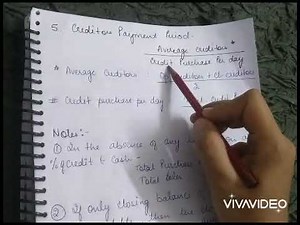 5. Creditors Payment Period-
Average Creditors*
Credit Purchase Per day
* Average Creditors Creditors + Cl. Creditors
2
# Credit purchase per day
Notes:-
① In the absence of any
% of Credit & Cash-
Total Purchase
Total Sales
② If only closing balance
then the
VIVAVIDEO